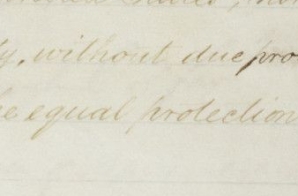 ty, without due pro
he equal protection